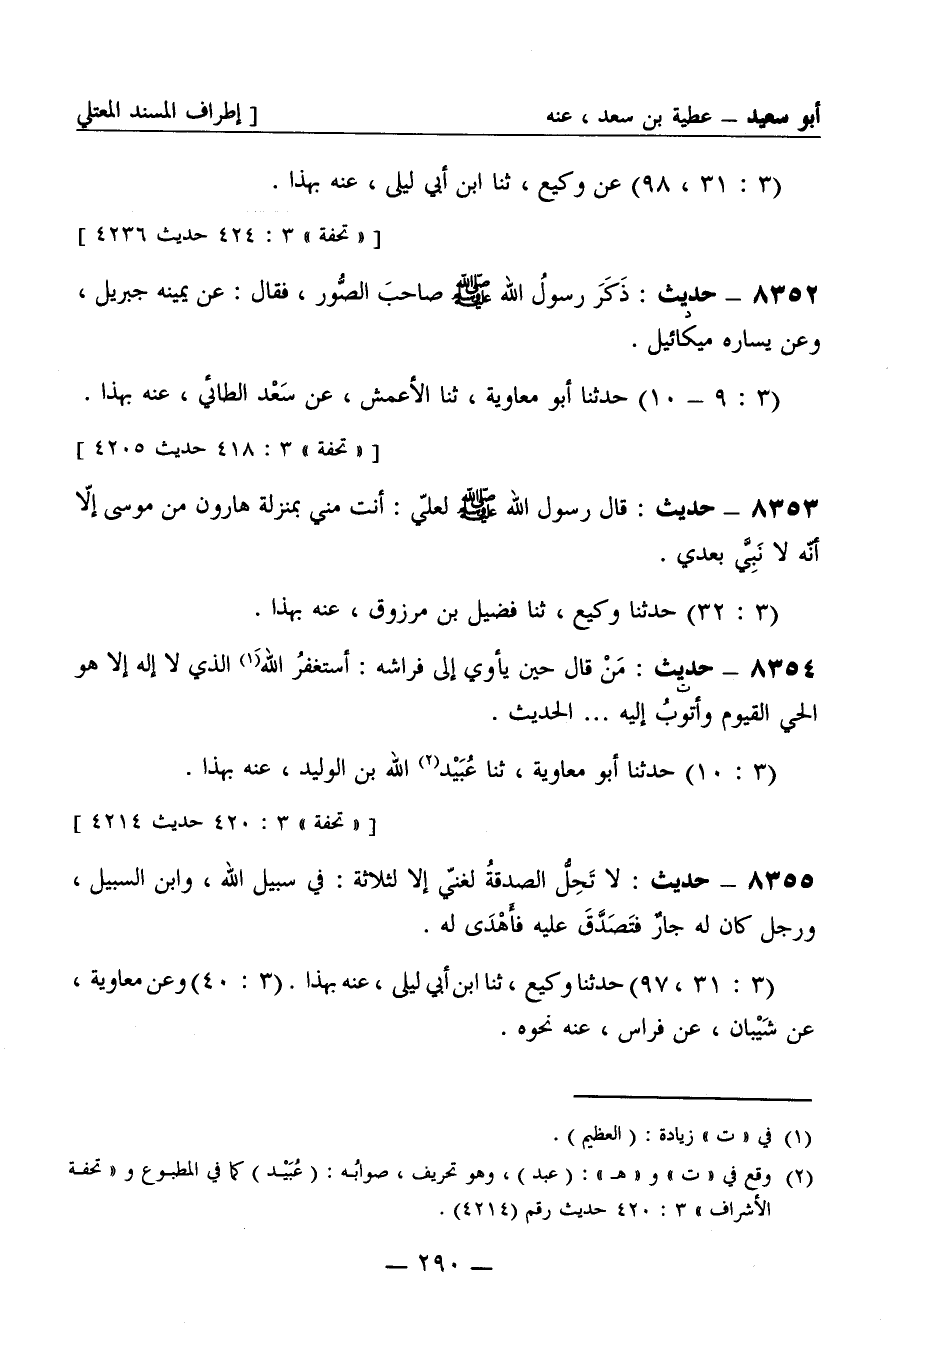 أبو سعيد – عطية بن سعد ، عنه [ إطراف المسند المعتلي
(٣ : ٣١ ، ٩٨) عن وكيع ، ثنا ابن أبي ليلى ، عنه بهذا .
[ « تحفة » ٣ : ٤٢٤ حديث ٤٢٣٦ ]
٨٣٥٢ – حديث : ذَكَرَ رسولُ الله ﷺ صاحبَ الصُّور ، فقال : عن يمينه جبريل ،
د
وعن يساره ميكائيل .
(٣ : ٩ – ١٠) حدثنا أبو معاوية ، ثنا الأعمش ، عن سَعْد الطائي ، عنه بهذا .
[ « تحفة » ٣ : ٤١٨ حديث ٤٢٠٥ ]
٨٣٥٣ – حديث : قال رسول الله ﷺ لعليّ : أنت مني بمنزلة هارون من موسى إلّا
أنّه لا نَبِيَّ بعدي .
(٣ : ٣٢) حدثنا وكيع ، ثنا فضيل بن مرزوق ، عنه بهذا .
٨٣٥٤ – حديث : مَنْ قال حين يأوي إلى فراشه : أستغفرُ اللهَ(١) الذي لا إله إلا هو
ت
الحي القيوم وأتوبُ إليه ... الحديث .
(٣ : ١٠) حدثنا أبو معاوية ، ثنا عُبَيْد(٢) الله بن الوليد ، عنه بهذا .
[ « تحفة » ٣ : ٤٢٠ حديث ٤٢١٤ ]
٨٣٥٥ – حديث : لا تَحِلُّ الصدقةُ لغنيّ إلا لثلاثة : في سبيل الله ، وابن السبيل ،
ورجل كان له جارٌ فتَصَدَّقَ عليه فأَهْدَى له .
(٣ : ٣١ ، ٩٧) حدثنا وكيع ، ثنا ابن أبي ليلى ، عنه بهذا . (٣ : ٤٠) وعن معاوية ،
عن شَيْبان ، عن فراس ، عنه نحوه .
(١) في « ت » زيادة : ( العظيم ) .
(٢) وقع في « ت » و « هـ » : ( عبد ) ، وهو تحريف ، صوابُه : ( عُبَيْد ) كما في المطبوع و « تحفة
الأشراف » ٣ : ٤٢٠ حديث رقم (٤٢١٤) .
– ٢٩٠ –